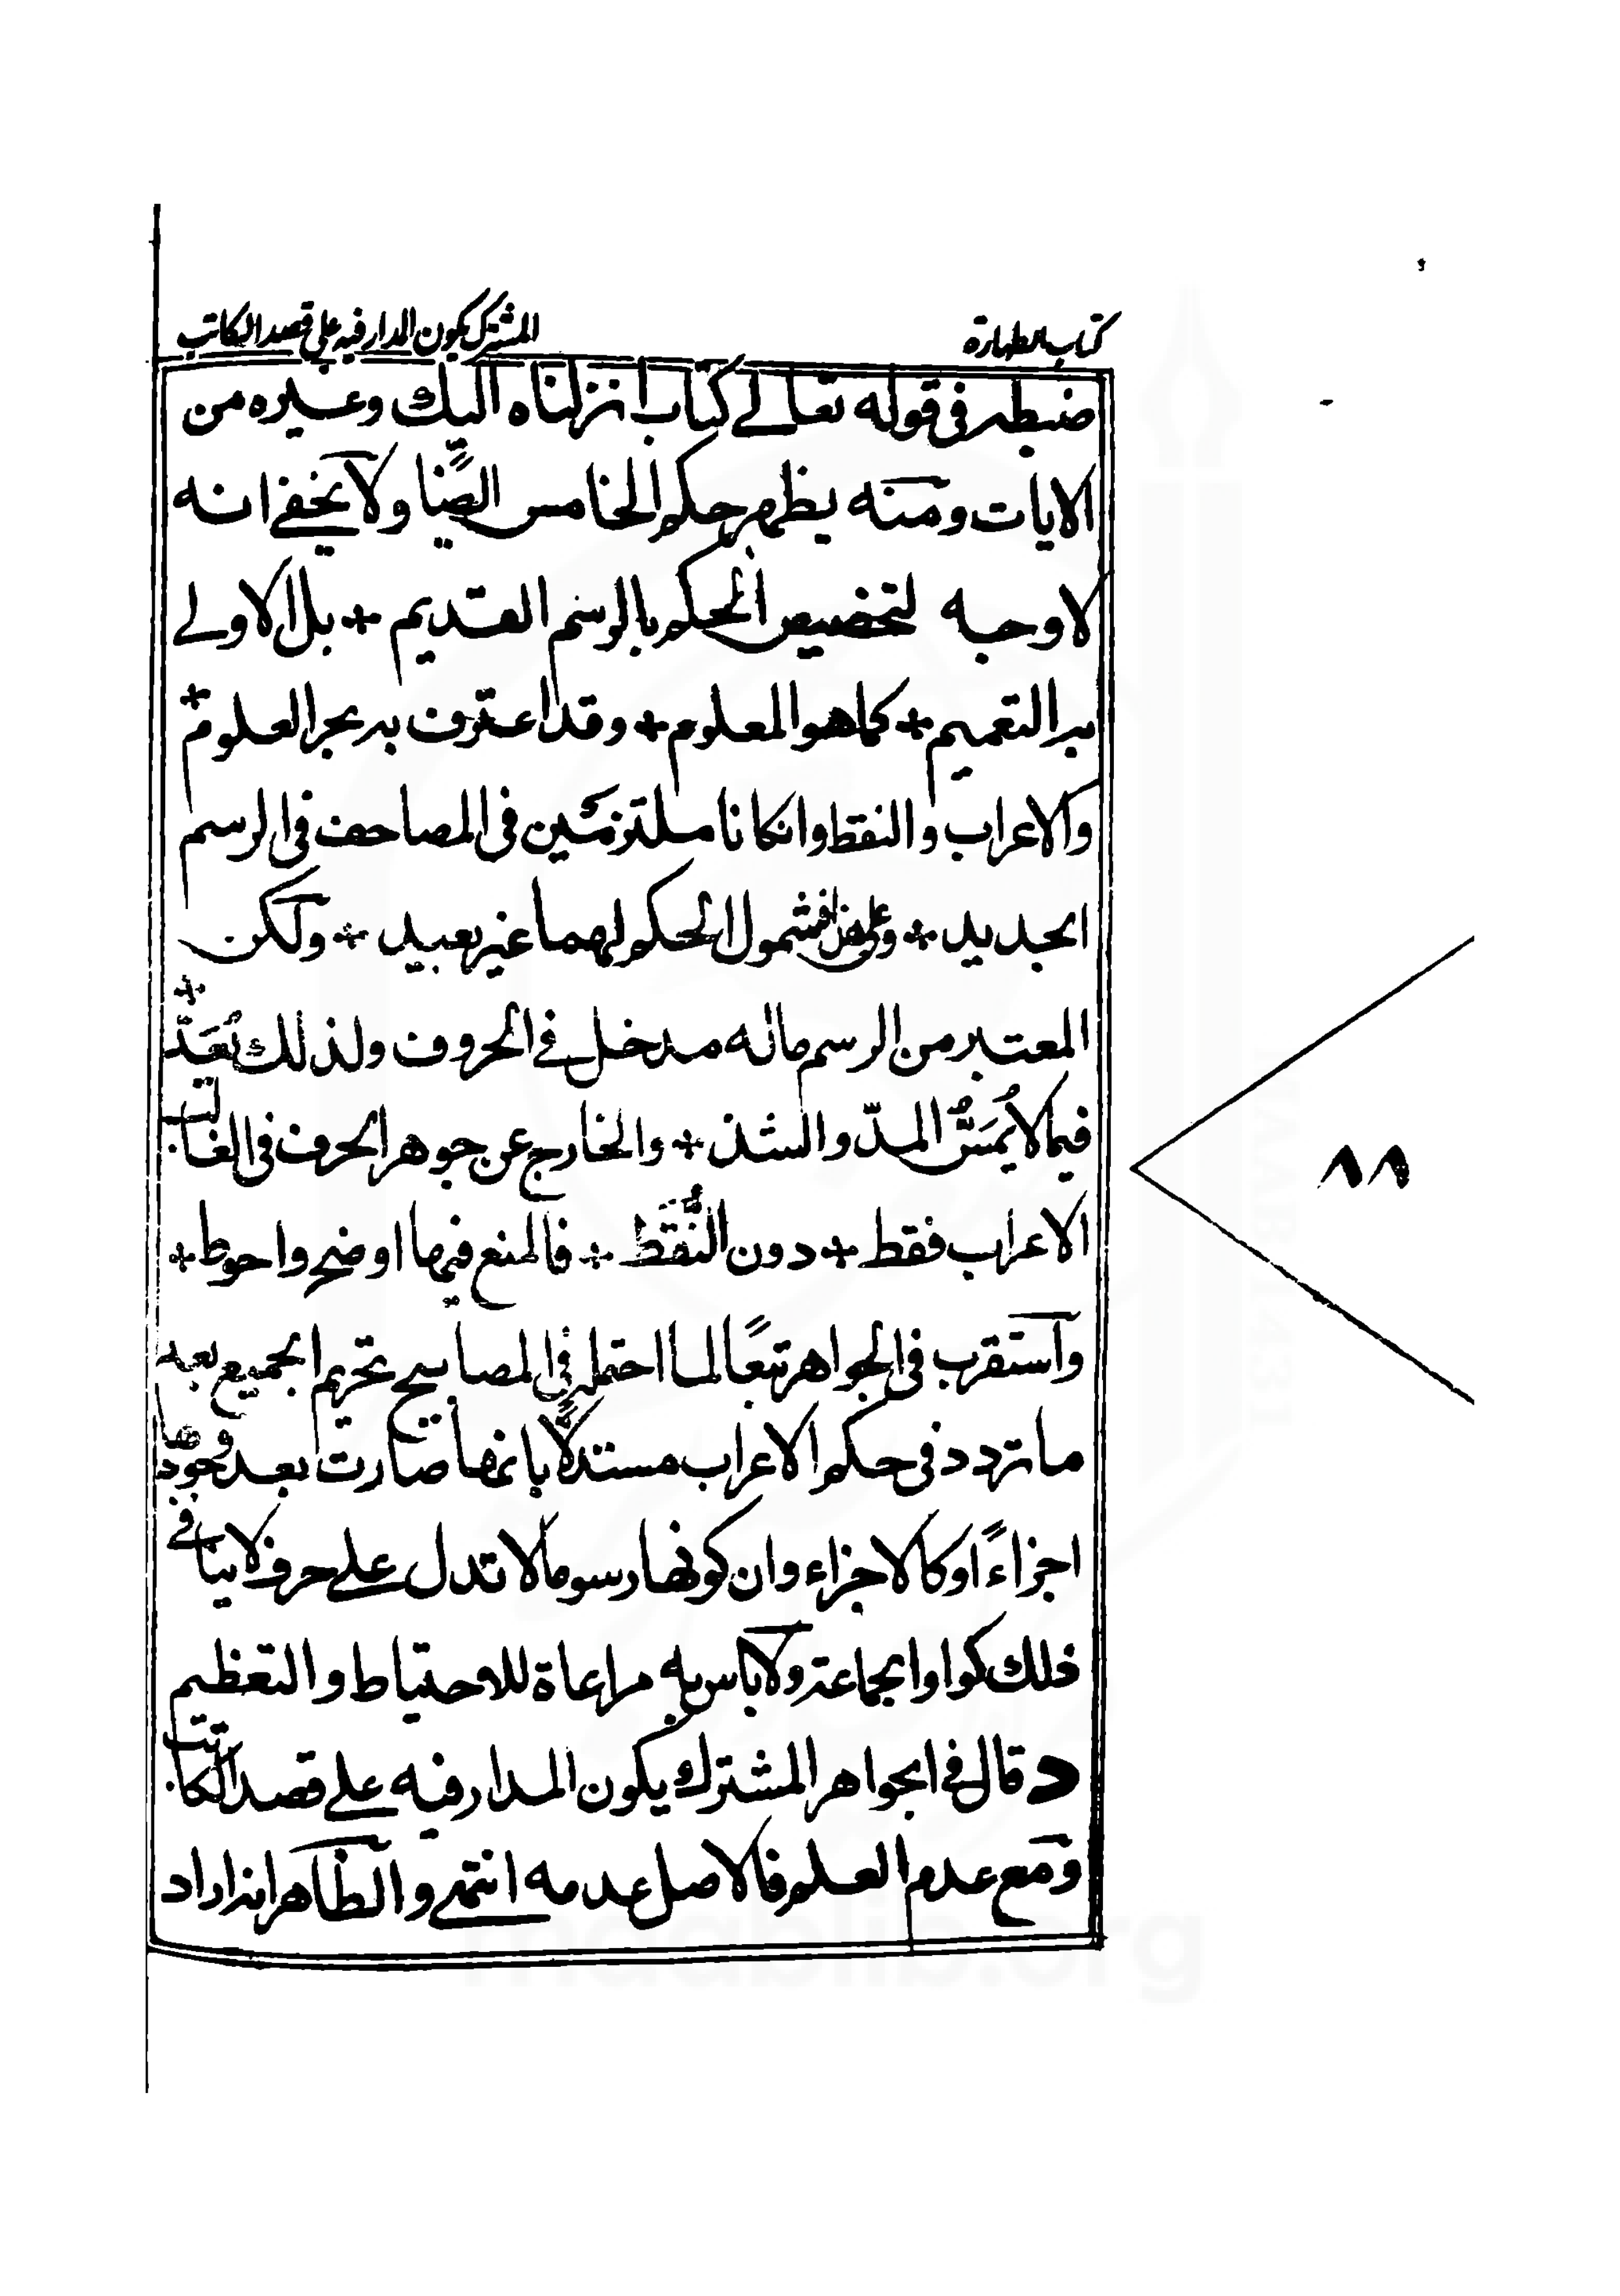 كتاب الطهارة
المشترك يكون المدار فيه على قصد الكاتب
ضبطه في قوله تعالى كتاب انزلناه اليك وغيره من
الايات ومنه يظهر حكم الخامس ايضًا ولا يخفى انه
لا وجه لتخصيص الحكم بالرسم القديم + بل الاولى
به التعميم + كما هو المعلوم + وقد اعترف به بحر العلوم +
والاعراب والنقط وان كانا ملتزمين في المصاحف في الرسم
الجديد + وعلى هذا فشمول الحكم لهما غير بعيد + ولكن
المعتبر من الرسم ما له مدخل في الحروف ولذلك يُعَدّ +
فيما لا يُمَسُّ المدّ والشد + والخارج عن جوهر الحرف في الغالب
الاعراب فقط + دون النُّقَط + فالمنع فيها اوضح واحوط +
واستقرب في الجواهر تبعًا لما احتمله في المصابيح تحريم الجميع بعد
ما تردد في حكم الاعراب مستدلًا بانها صارت بعد وجودها
اجزاءً او كالاجزاء وان كونها رسوما لا تدل على حرف لا ينافي
ذلك كواو الجماعة ولا باس به مراعاة للاحتياط والتعظيم
د قال في الجواهر المشترك يكون المدار فيه على قصد الكاتب
ومع عدم العلم فالاصل عدمه انتهى والظاهر انه اراد
٨٨